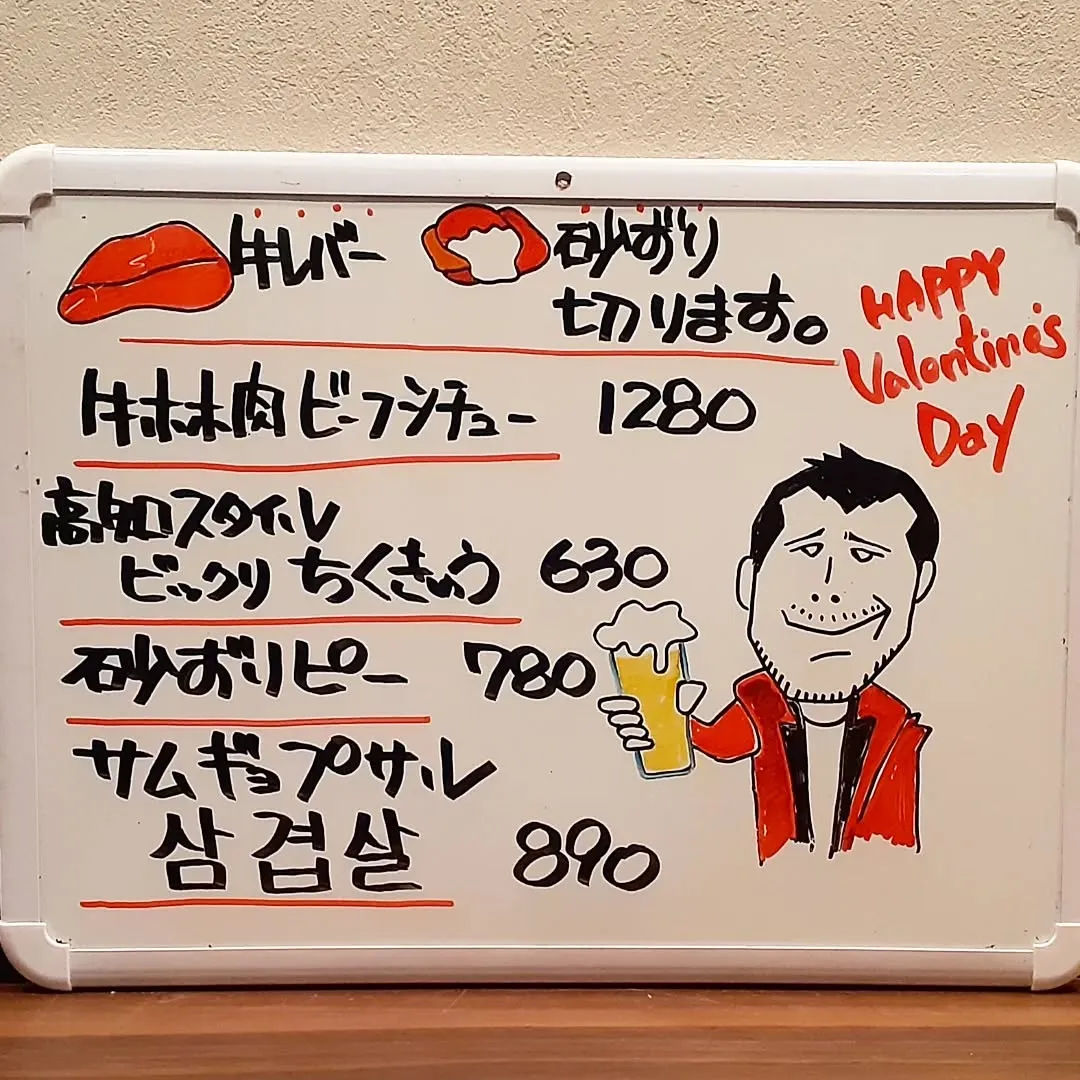 牛レバー 砂ずり
切ります。
HAPPY
Valentine's
DAY
牛ホホ肉ビーフシチュー 1280
高知スタイル
ビックリ ちくきゅう 630
砂ずりピー 780
サムギョプサル
삼겹살 890